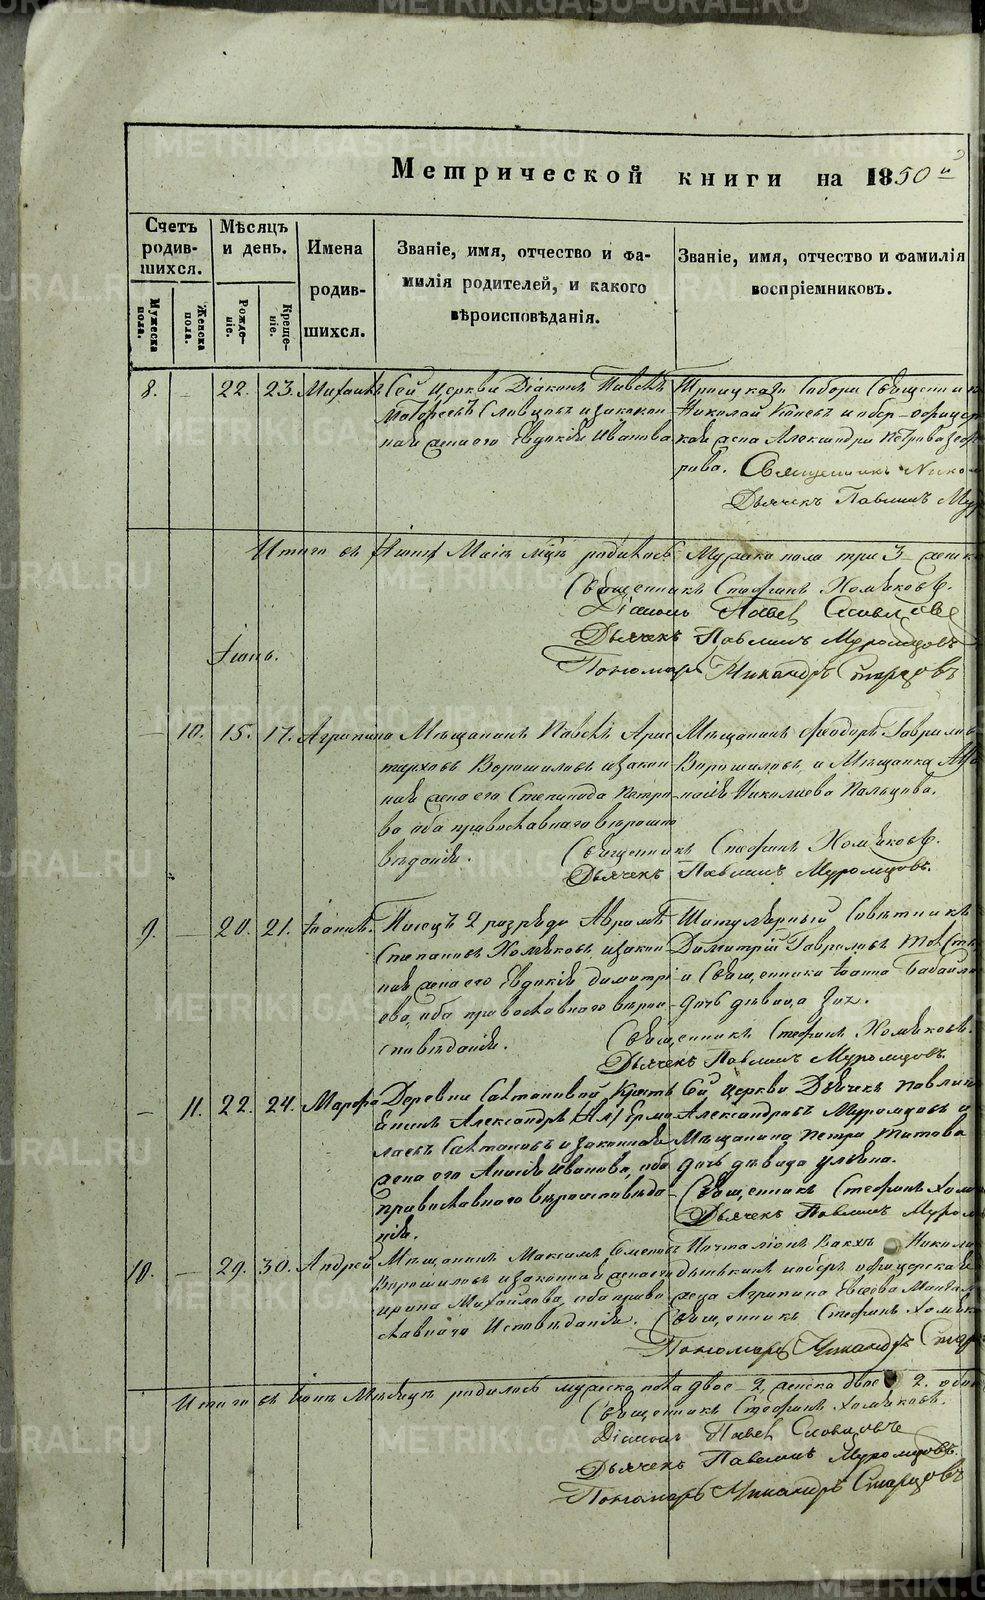 METRIKI.GASO-URAL.RU
Метрической книги на 1850й
Счетъ родив-шихся.
Мѣсяцъ и день.
Имена родив-шихся.
Званіе, имя, отчество и фа-милія родителей, и какого вѣроисповѣданія.
Званіе, имя, отчество и фамилія воспріемниковъ.
Мужеска пола.
Женска пола.
Рожде-ніе.
Креще-ніе.
8. - 22. 23. Михаилъ
Сей Церкви Діаконъ Павелъ
Словцовъ и закон
ная жена его Евдокія Иванова
Троицкаго Собора Священник
Николай и обер-офицер
ская жена Александра Петрова
Священникъ Никол
Дьячекъ Павлинъ Мур
Итого въ Маіѣ родилось Мужеска пола три 3 женска
Священникъ Стефанъ Хомяковъ.
Діаконъ Павел Словцовъ
Дьячекъ Павлинъ Муромцовъ
Пономарь Никандръ Старцовъ
Іюнь.
- 10. 15. 17. Агрипина
Мѣщанинъ Павелъ Арис
тарховъ Ворошиловъ и закон
ная жена его Степанида Петро
ва оба православнаго вѣроиспо
вѣданія.
Мѣщанинъ Феодоръ Гавриловъ
Ворошиловъ, и Мѣщанка
Николаева Пальцова.
Священникъ Стефанъ Хомяковъ.
Дьячекъ Павлинъ Муромцовъ.
9. - 20. 21. Іоаннъ.
Писецъ 2 разряда Авраамъ
Степановъ Хомяковъ, и закон
ная жена его Евдокія Димитрі
ева, оба православнаго вѣрои
сповѣданія.
Титулярный Совѣтникъ
Димитрій Гавриловъ
и Священника Іоанна
дочь дѣвица
Священникъ Стефанъ Хомяковъ.
Дьячекъ Павлинъ Муромцовъ.
- 11. 22. 24. Марфа
Деревни Салтановой Крестъ
Александръ Ермо
лаевъ Салтановъ и законная
жена его Анисія Иванова, оба
православнаго вѣроисповѣда
нія.
Сей Церкви Дьячекъ Павлинъ
Александровъ Муромцовъ и
Мѣщанина Петра Титова
дочь дѣвица Ульяна.
Священникъ Стефанъ Хомя
Дьячекъ Павлинъ Муром
10. - 29. 30. Андрей
Мѣщанинъ Максимъ Семенов
Ворошиловъ и законная жена его
Ирина Михайлова, оба право
славнаго Исповѣданія.
Почталіонъ Николае
и оберъ офицерская
жена Агрипина
Священникъ Стефанъ Хомяк
Пономарь Никандръ Стар
Итого въ Іюнѣ Мѣсяцѣ родилось мужеска пола двое - 2, женска двѣ 2. обои
Священникъ Стефанъ Хомяковъ.
Діаконъ Павел Словцовъ
Дьячекъ Павлинъ Муромцовъ.
Пономарь Никандръ Старцовъ